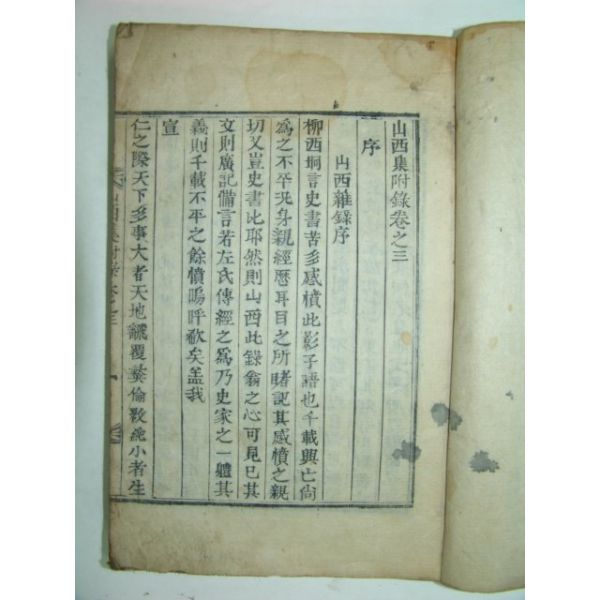 山西集附錄卷之三
序
山西雜錄序
柳西坰言史書苦多感憤此影子語也千載興亡尙
爲之不平況身親經歷耳目之所睹記其感憤之親
切又豈史書比耶然則山西此錄翁之心可見已其
文則廣記備言若左氏傳經之爲乃史家之一體其
義則千載不平之餘憤嗚呼欷矣盖我
宣
仁之際天下多事大者天地飜覆彛倫斁絶小者生
山西集附錄卷之三